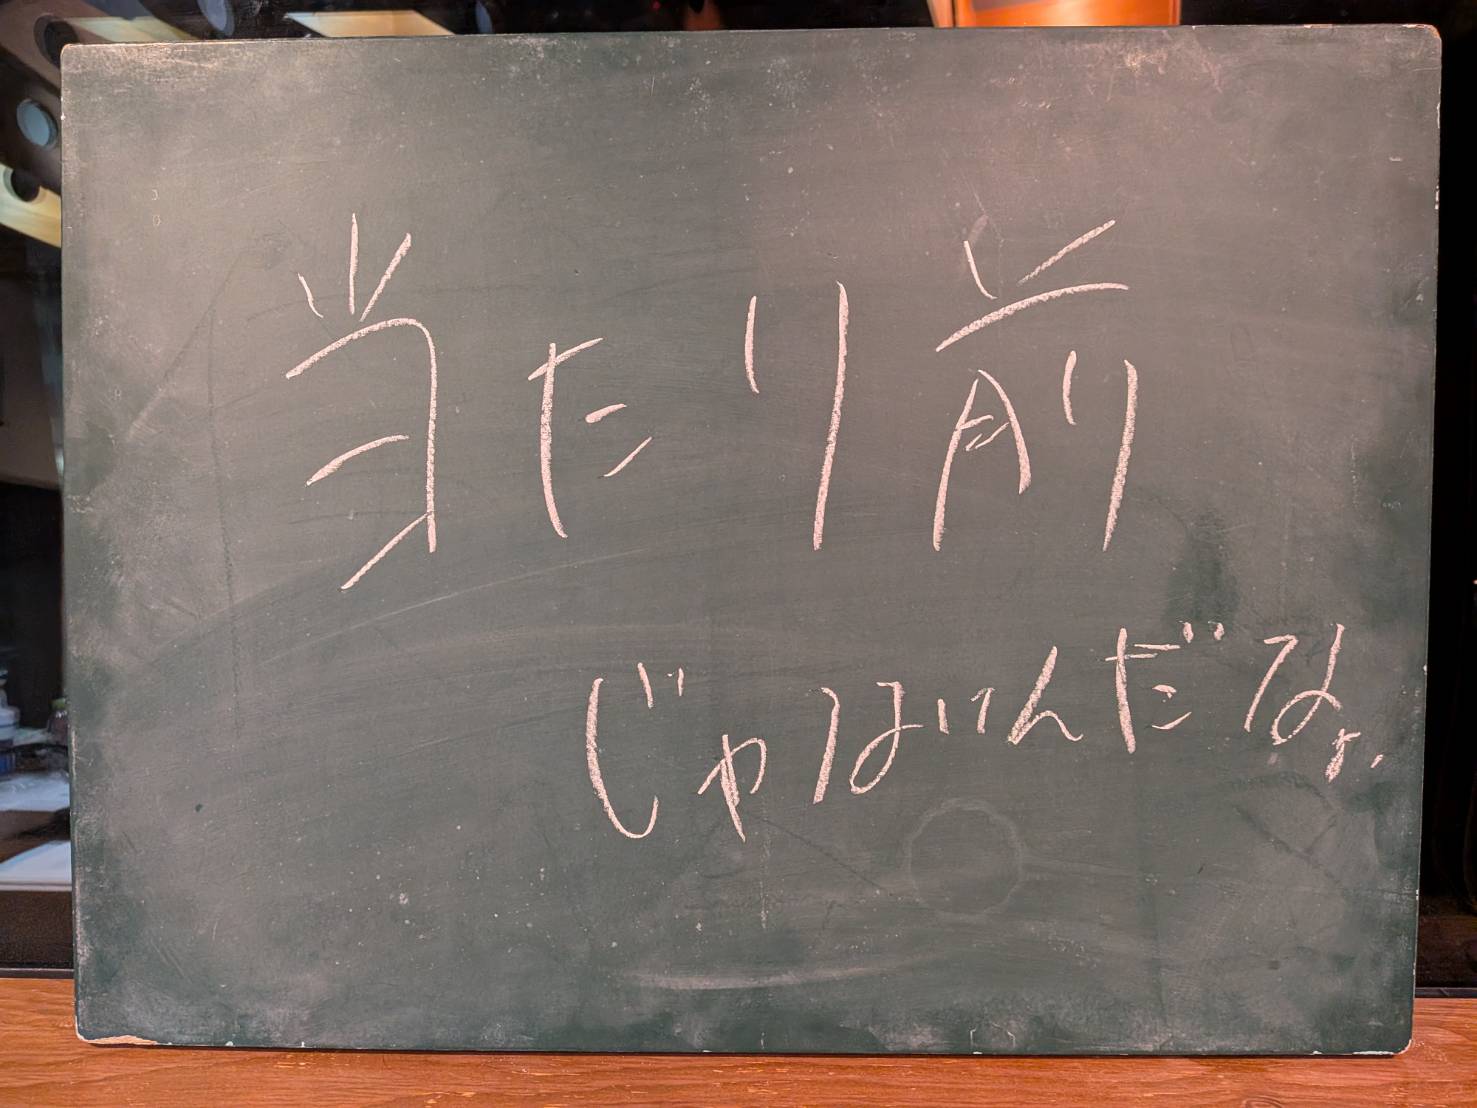 当たり前
じゃないんだな。